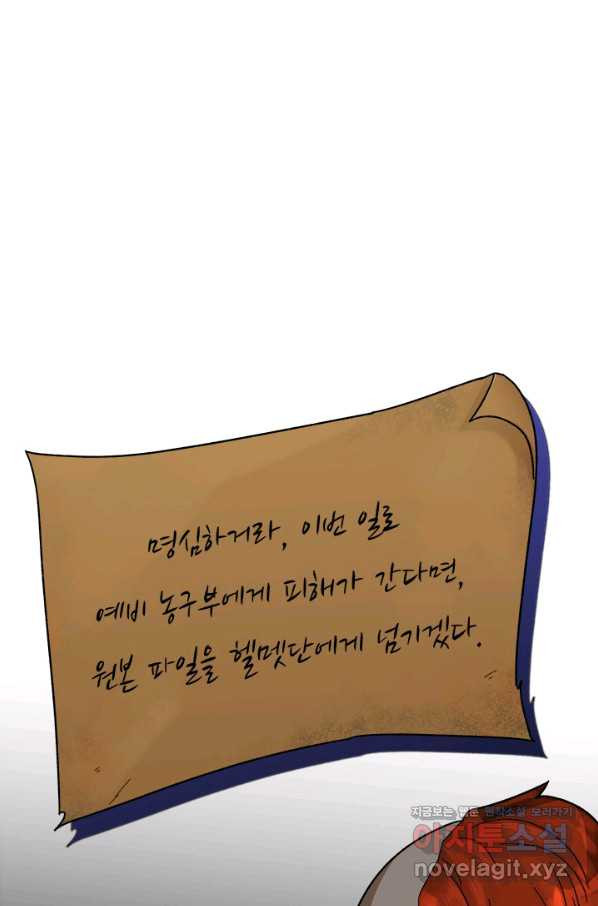 명심하거라, 이번 일로
예비 농구부에게 피해가 간다면,
원본 파일을 헬멧단에게 넘기겠다.
지금보는 웹툰 원작소설 보러가기
아지툰소설
novelagit.xyz